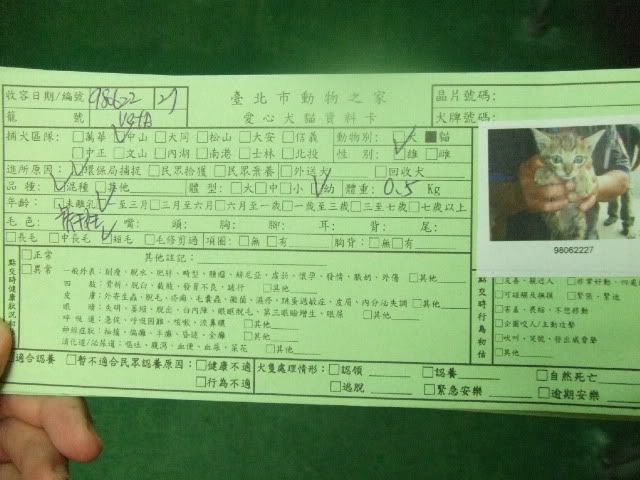 臺北市動物之家
愛心犬貓資料卡
收容日期/編號 98622 27
籠號 V4TB
晶片號碼:
犬牌號碼:
捕犬區隊: □萬華 ☑中山 □大同 □松山 □大安 □信義
□中正 □文山 □內湖 □南港 □士林 □北投
動物別: □犬 ■貓
性別: ☑雄 □雌
進所原因: ☑環保局捕捉 □民眾拾獲 □民眾棄養 □外送 □回收犬
品種: ☑混種 □其他 體型: □大 □中 □小 ☑幼 體重: 0.5 Kg
年齡: ☑未離乳 □一至三月 □三月至六月 □六月至一歲 □一歲至三歲 □三至七歲 □七歲以上
毛色: 嘴: 頭: 胸: 腳: 耳: 背: 尾:
□長毛 □中長毛 ☑短毛 □毛修剪過 項圈: □無 □有 胸背: □無 □有
98062227
點交時健康狀況初
□正常 其他註記:
□異常 一般外表: 削瘦、脫水、肥胖、畸型、腫瘤、赫尼亞、虛弱、懷孕、發情、脹奶、外傷 □其他
四肢: 骨折、脫臼、截肢、發育不良、跛行 □其他
皮膚: 外寄生蟲、脫毛、疥癬、毛囊蟲、黴菌、濕疹、跳蚤過敏症、皮屑、內分泌失調 □其他
眼睛: 失明、萎縮、脫出、白內障、眼瞼脫毛、第三眼瞼增生、眼屎 □其他
呼吸道: 急促、呼吸困難、咳嗽、流鼻膿 □其他
神經症狀: 抽搐、偏癱、半癱、昏迷、全癱 □其他
消化道/泌尿道: 嘔吐、腹瀉、血便、血尿、尿花 □其他
點交時行為初估
□友善、親近人 □非常好動
□可碰觸及撫摸 □緊張、緊迫
□害羞、畏縮、不想移動
□企圖咬人/主動追擊
□吠叫、哭號、發出威脅聲
□其他
適合認養 □暫不適合民眾認養原因: □健康不適
□行為不適
犬隻處理情形: □認領 □認養 □自然死亡
□逃脫 □緊急安樂 □逾期安樂